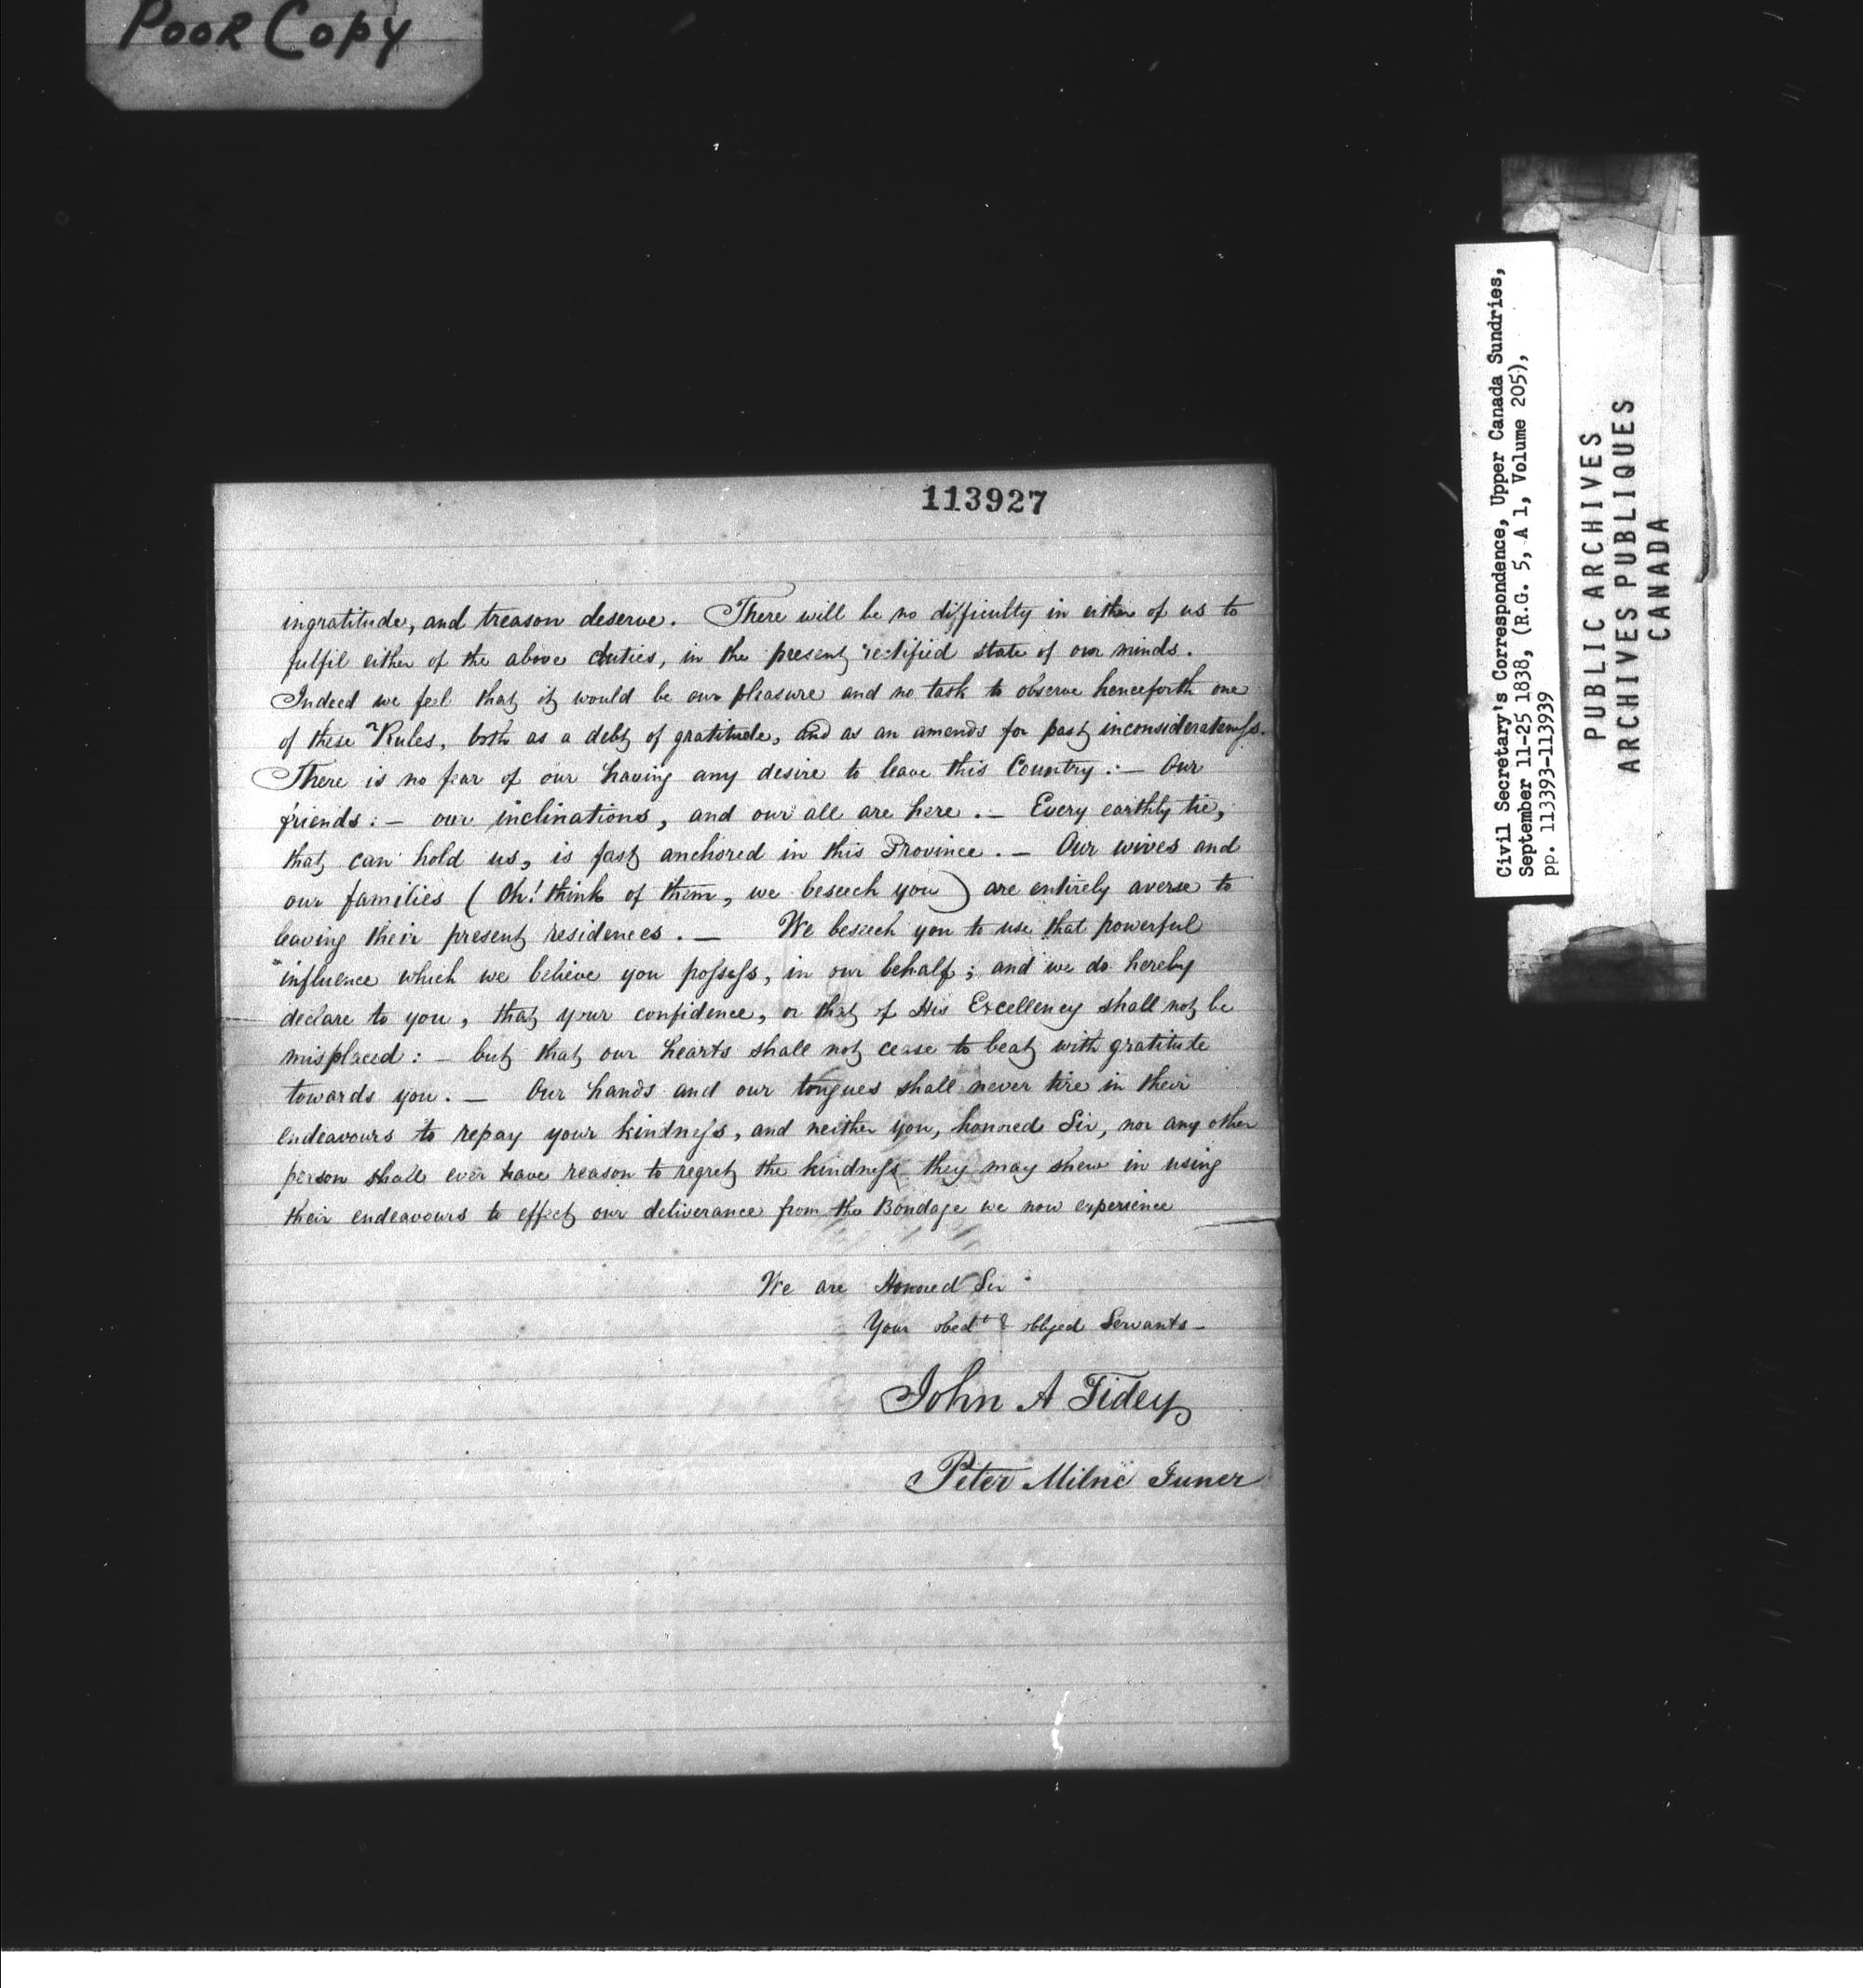 Poor Copy
113927
ingratitude, and treason deserve. There will be no difficulty in either of us to
fulfil either of the above duties, in the present rectified state of our minds.
Indeed we feel that it would be our pleasure and no task to observe henceforth one
of these Rules, both as a debt of gratitude, and as an amends for past inconsiderateness.
There is no fear of our having any desire to leave this Country:— Our
friends:— our inclinations, and our all are here.— Every earthly tie,
that can hold us, is fast anchored in this Province.— Our wives and
our families (Oh! think of them, we beseech you) are entirely averse to
leaving their present residences.— We beseech you to use that powerful
influence which we believe you possess, in our behalf; and we do hereby
declare to you, that your confidence, or that of His Excellency shall not be
misplaced:— but that our hearts shall not cease to beat with gratitude
towards you.— Our hands and our tongues shall never tire in their
endeavours to repay your kindness, and neither you, honored Sir, nor any other
person shall ever have reason to regret the kindness they may shew in using
their endeavours to effect our deliverance from the Bondage we now experience
We are Honored Sir
Your obedt & obliged Servants—
John A Tidey
Peter Milne Juner
Civil Secretary's Correspondence, Upper Canada Sundries,
September 11-25 1838, (R.G. 5, A 1, Volume 205),
pp. 113393-113939
PUBLIC ARCHIVES
ARCHIVES PUBLIQUES
CANADA